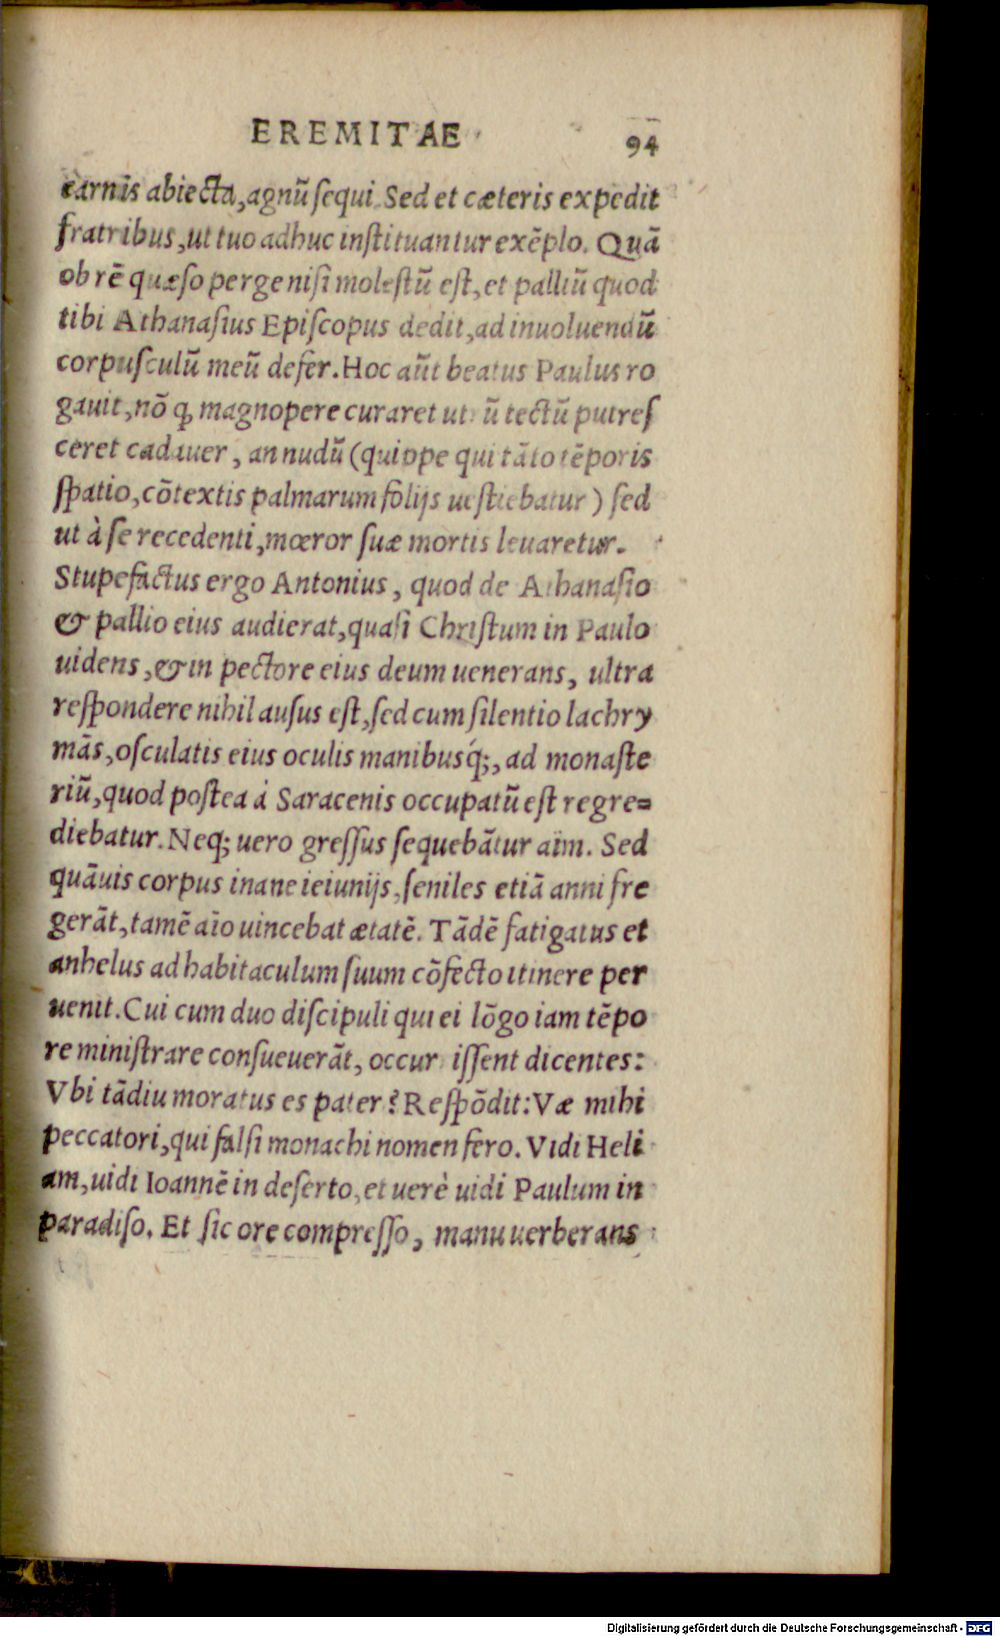 EREMITAE 94
carnis abiecta, agnū ſequi. Sed et cæteris expedit
fratribus, ut tuo adhuc inſtituantur exēplo. Quā
ob rē quæſo perge niſi moleſtū eſt, et palliū quod
tibi Athanaſius Epiſcopus dedit, ad inuoluendū
corpuſculū meū defer. Hoc aūt beatus Paulus ro
gauit, nō ꝙ magnopere curaret utrū tectū putreſ
ceret cadauer, an nudū (quippe qui tāto tēporis
ſpatio, cōtextis palmarum folijs ueſtiebatur) ſed
ut à ſe recedenti, mœror ſuæ mortis leuaretur.
Stupefactus ergo Antonius, quod de Athanaſio
& pallio eius audierat, quaſi Chriſtum in Paulo
uidens, & in pectore eius deum uenerans, ultra
reſpondere nihil auſus eſt, ſed cum ſilentio lachry
mās, oſculatis eius oculis manibusq́;, ad monaſte
riū, quod poſtea à Saracenis occupatū eſt regre=
diebatur. Neq; uero greſſus ſequebātur aīm. Sed
quāuis corpus inane ieiunijs, ſeniles etiā anni fre
gerāt, tamē aīo uincebat ætatē. Tādē fatigatus et
anhelus ad habitaculum ſuum cōfecto itinere per
uenit. Cui cum duo diſcipuli qui ei lōgo iam tēpo
re miniſtrare conſueuerāt, occurriſſent dicentes:
Vbi tādiu moratus es pater? Reſpōdit: Væ mihi
peccatori, qui falſi monachi nomen fero. Vidi Heli
am, uidi Ioannē in deſerto, et uerè uidi Paulum in
paradiſo. Et ſic ore compreſſo, manu uerberans
Digitalisierung gefördert durch die Deutsche Forschungsgemeinschaft - DFG